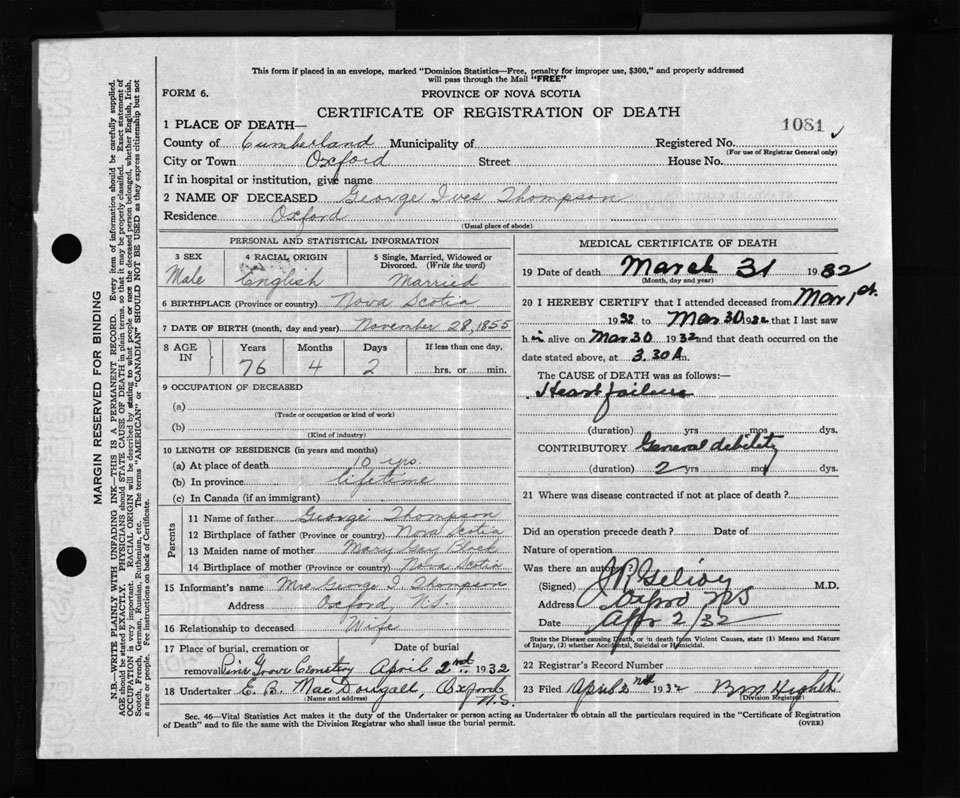 This form if placed in an envelope, marked "Dominion Statistics—Free, penalty for improper use, $300," and properly addressed
will pass through the Mail "FREE"
FORM 6.
PROVINCE OF NOVA SCOTIA
CERTIFICATE OF REGISTRATION OF DEATH
1081
1 PLACE OF DEATH—
County of Cumberland Municipality of Registered No.
(For use of Registrar General only)
City or Town Oxford Street House No.
If in hospital or institution, give name
2 NAME OF DECEASED George Ives Thompson
Residence Oxford
(Usual place of abode)
PERSONAL AND STATISTICAL INFORMATION
3 SEX 4 RACIAL ORIGIN 5 Single, Married, Widowed or
Divorced. (Write the word)
Male English Married
6 BIRTHPLACE (Province or country) Nova Scotia
7 DATE OF BIRTH (month, day and year) November 28, 1855
8 AGE IN Years Months Days If less than one day,
76 4 2 hrs. or min.
9 OCCUPATION OF DECEASED
(a)
(Trade or occupation or kind of work)
(b)
(Kind of industry)
10 LENGTH OF RESIDENCE (in years and months)
(a) At place of death 10 yrs.
(b) In province lifetime
(c) In Canada (if an immigrant)
Parents
11 Name of father George Thompson
12 Birthplace of father (Province or country) Nova Scotia
13 Maiden name of mother Mary
14 Birthplace of mother (Province or country) Nova Scotia
15 Informant's name Mrs George I. Thompson
Address Oxford, N.S.
16 Relationship to deceased Wife
17 Place of burial, cremation or Date of burial
removal Pine Grove Cemetery April 2nd 1932
18 Undertaker E. B. MacDougall, Oxford
(Name and address) N.S.
MEDICAL CERTIFICATE OF DEATH
19 Date of death March 31 1932
(Month, day and year)
20 I HEREBY CERTIFY that I attended deceased from Mar 1st
1932 to Mar 30 1932 that I last saw
him alive on Mar 30 1932 and that death occurred on the
date stated above, at 3.30 A m.
The CAUSE OF DEATH was as follows:—
Heart failure
(duration) yrs mos dys.
CONTRIBUTORY General debility
(duration) 2 yrs mos dys.
21 Where was disease contracted if not at place of death?
Did an operation precede death? Date of
Nature of operation
Was there an autopsy?
(Signed) M.D.
Address Oxford NS
Date Apr 2/32
State the Disease causing Death, or in death from Violent Causes, state (1) Means and Nature
of Injury, (2) whether Accidental, Suicidal or Homicidal.
22 Registrar's Record Number
23 Filed April 2nd 1932
(Division Registrar)
Sec. 46—Vital Statistics Act makes it the duty of the Undertaker or person acting as Undertaker to obtain all the particulars required in the "Certificate of Registration
of Death" and to file the same with the Division Registrar who shall issue the burial permit. (OVER)
MARGIN RESERVED FOR BINDING
N.B.—WRITE PLAINLY WITH UNFADING INK—THIS IS A PERMANENT RECORD. Every item of information should be carefully supplied.
AGE should be stated EXACTLY. PHYSICIANS should STATE CAUSE OF DEATH in plain terms, so that it may be properly classified. Exact statement of
OCCUPATION is very important. RACIAL ORIGIN will be described by stating to what people or race the deceased person belonged, whether English, Irish,
Scotch, French, German, Russian, Ruthenian, etc. The terms "AMERICAN" or "CANADIAN" SHOULD NOT BE USED as they express citizenship but not
a race or people. Fee instructions on back of Certificate.